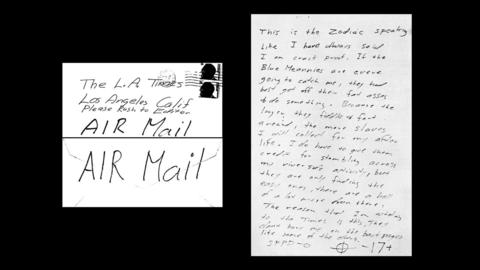 The L.A. Times
Los Angeles Calif
Please Rush to Editor
AIR Mail
AIR Mail
This is the Zodiac speaking
Like I have always said
I am crack proof. If the
Blue Meannies are evere
going to catch me, they had
best get off their fat asses
+ do something. Because the
longer they fiddle + fart
around, the more slaves
I will collect for my after
life. I do have to give them
credit for stumbling across
my riverside activity, but
they are only finding the
easy ones, there are a hell
of a lot more down there.
The reason that I'm writing
to the Times is this, They
don't bury me on the back pages
like some of the others.
SFPD-0 -17+